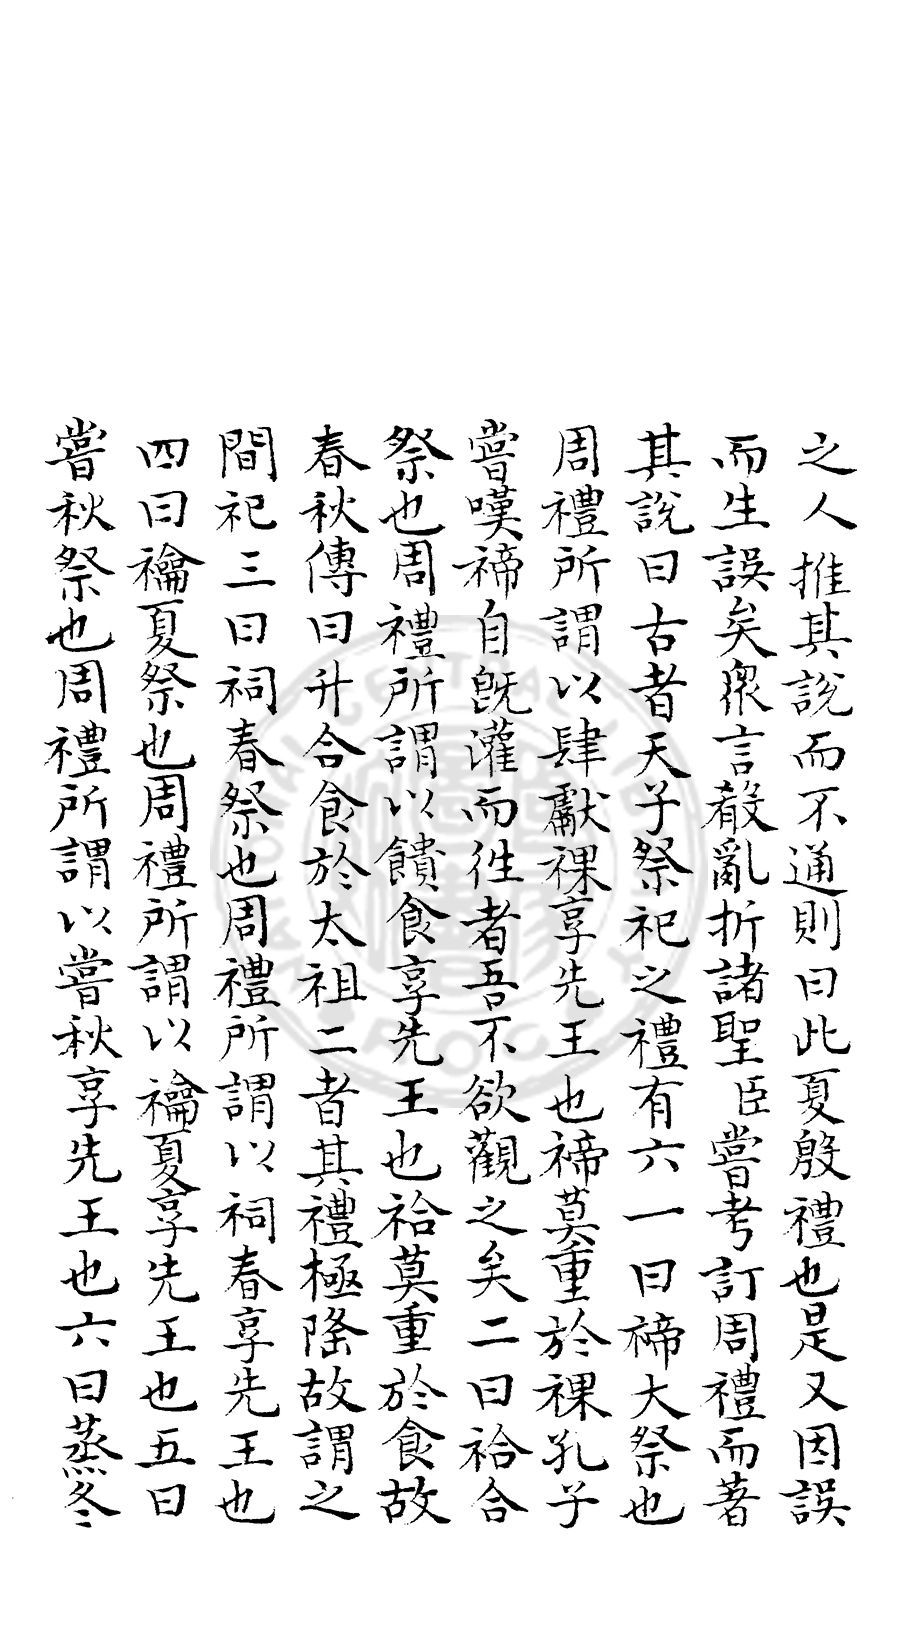 之人推其說而不通則曰此夏殷禮也是又因誤
而生誤矣衆言殽亂折諸聖臣嘗考訂周禮而著
其說曰古者天子祭祀之禮有六一曰禘大祭也
周禮所謂以肆獻祼享先王也禘莫重於祼孔子
嘗嘆禘自旣灌而徃者吾不欲觀之矣二曰祫合
祭也周禮所謂以饋食享先王也祫莫重於食故
春秋傳曰升合食於太祖二者其禮極隆故謂之
間祀三曰祠春祭也周禮所謂以祠春享先王也
四曰禴夏祭也周禮所謂以禴夏享先王也五曰
嘗秋祭也周禮所謂以嘗秋享先王也六曰蒸冬